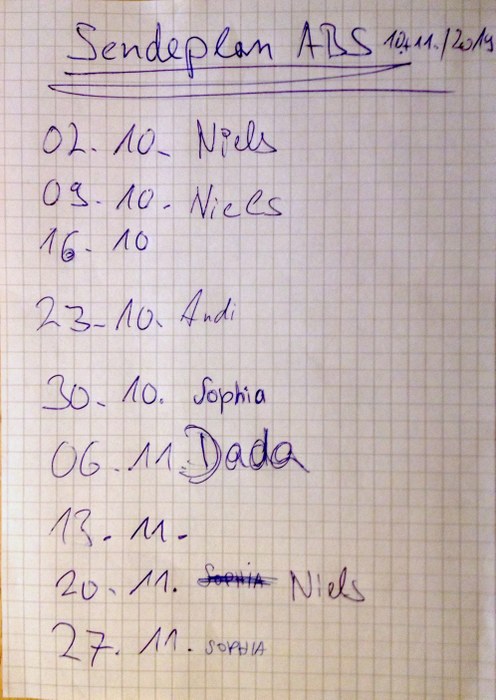 Sendeplan ABS 10.+11./2019
02. 10. Niels
09. 10. Niels
16. 10
23. 10. Andi
30. 10. Sophia
06. 11. Dada
13. 11.
20. 11. SOPHIA Niels
27. 11. SOPHIA